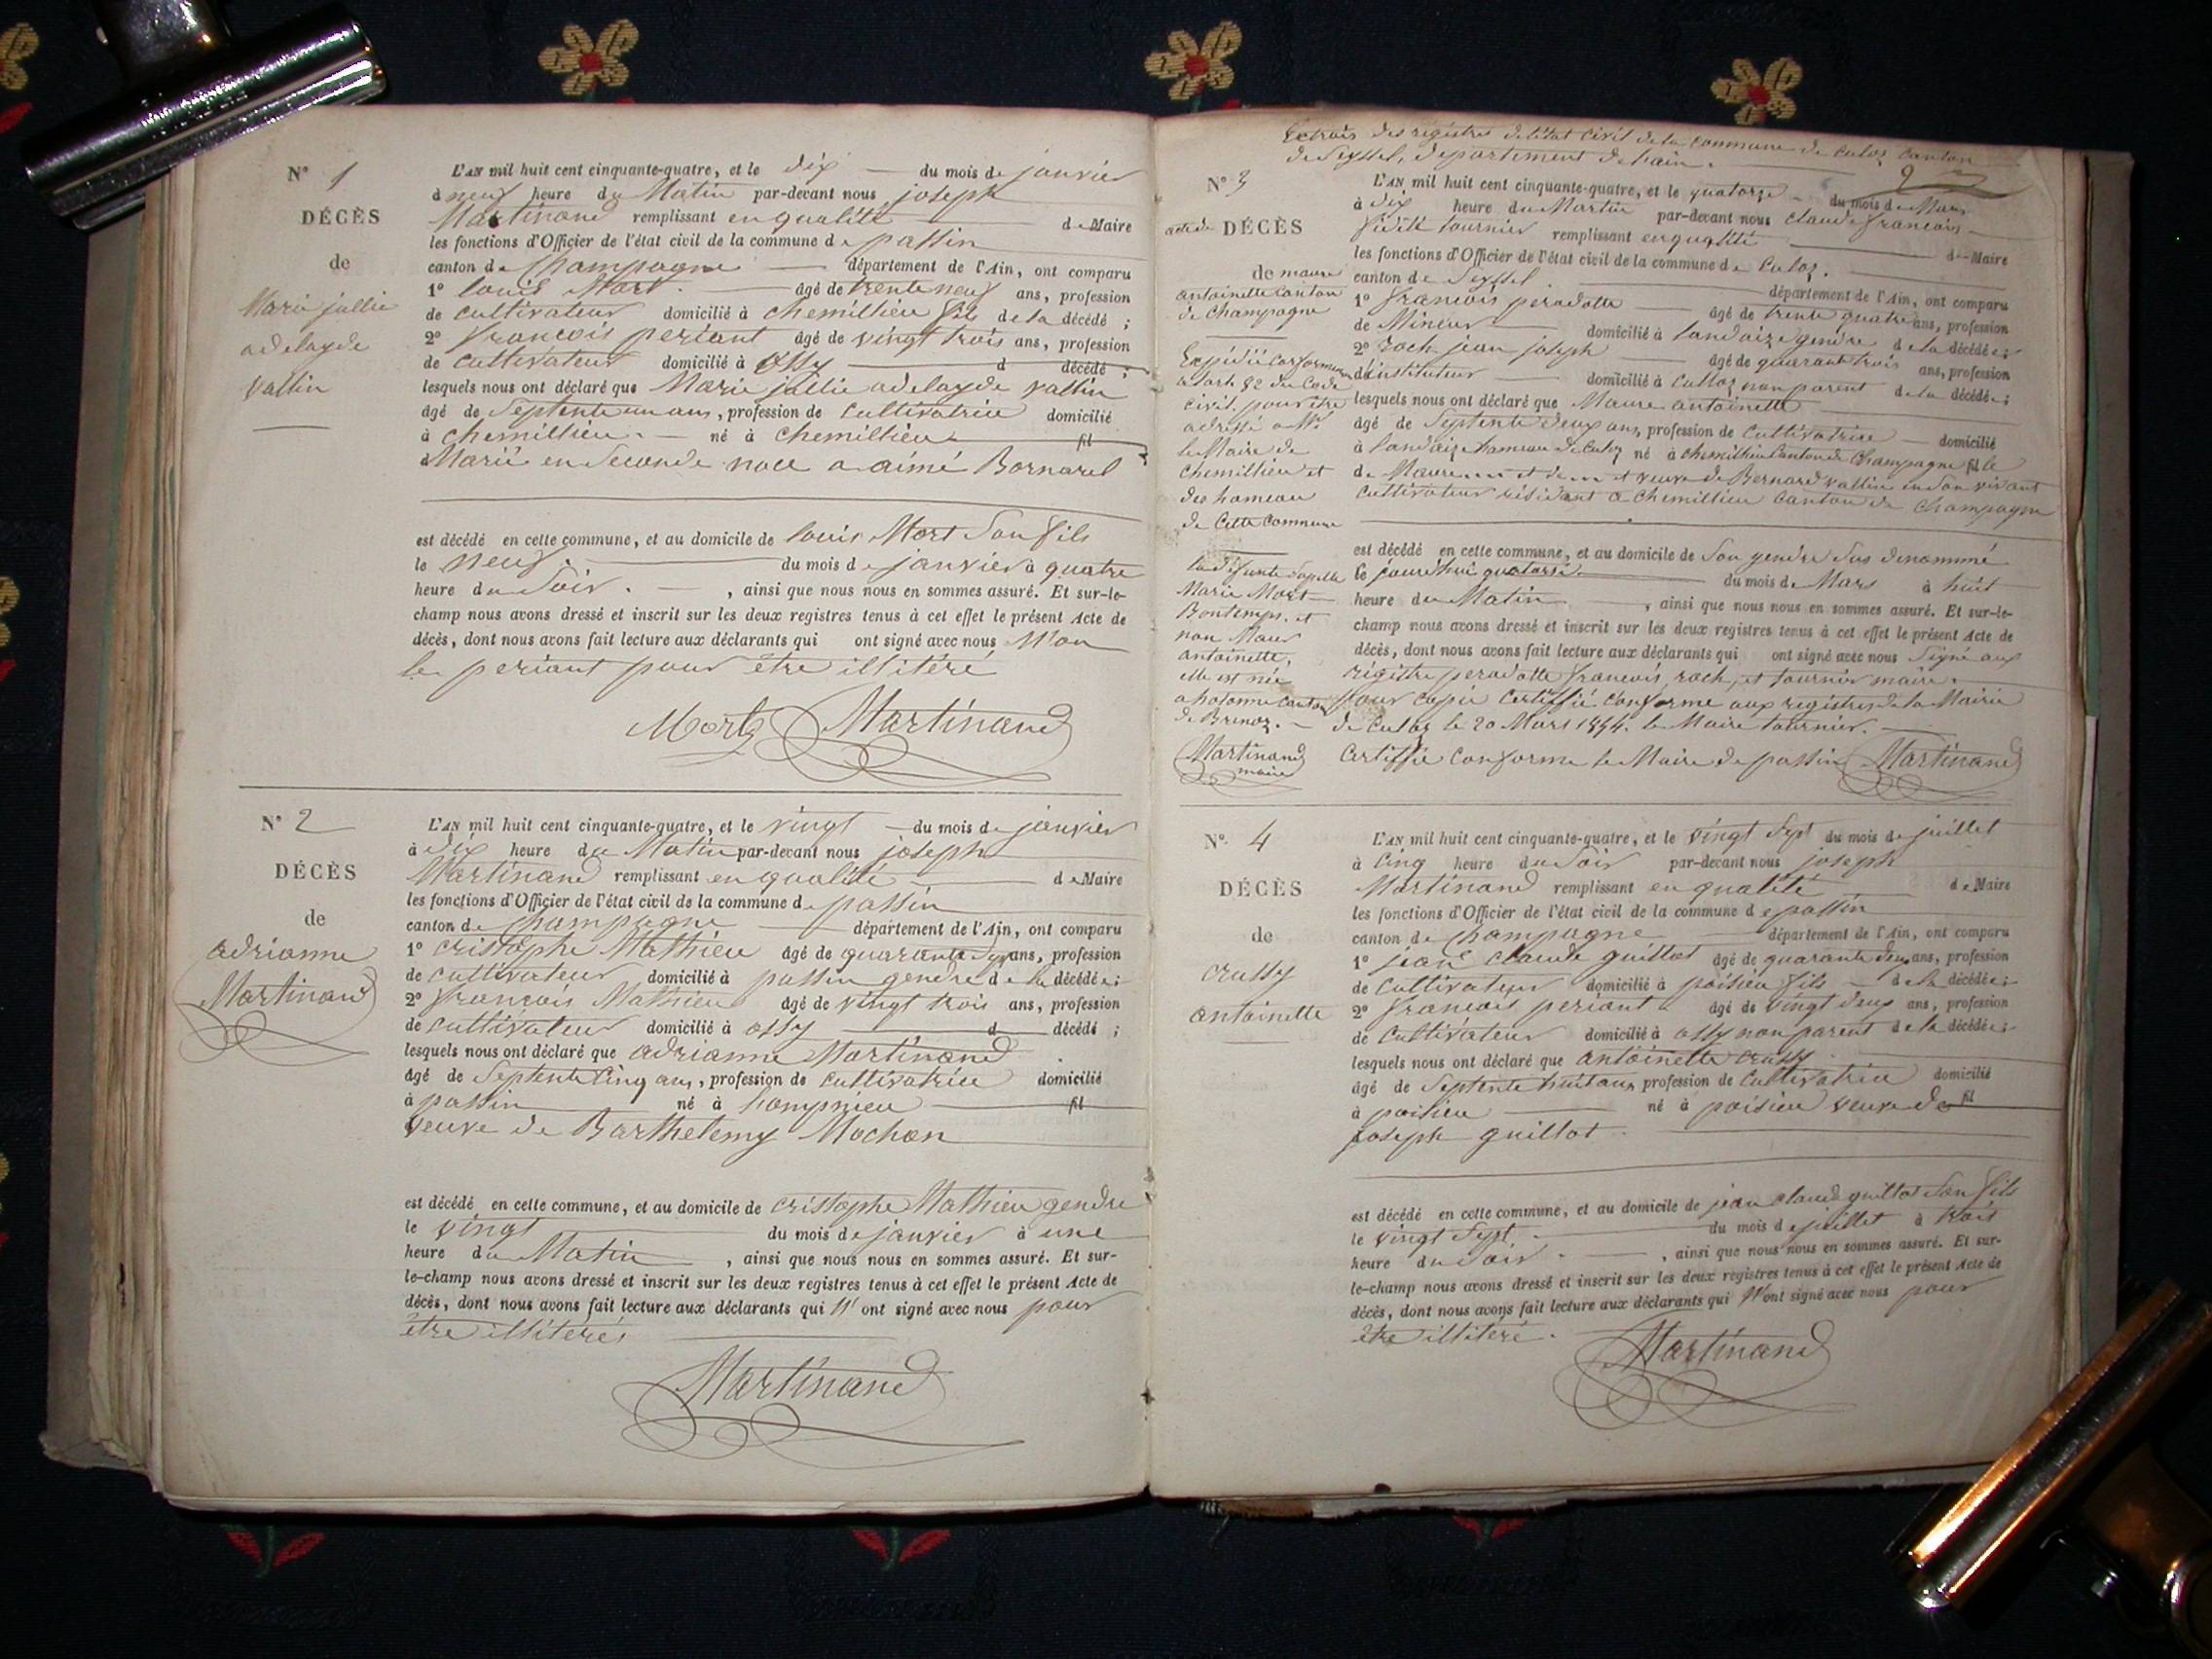 N° 1
DÉCÈS
de
Marie jullie
adelayde
vallin
L'AN mil huit cent cinquante-quatre, et le dix du mois de janvier
à neuf heure du Matin par-devant nous joseph
Martinand remplissant en qualité de Maire
les fonctions d'Officier de l'état civil de la commune de passin
canton de Champagne département de l'Ain, ont comparu
1° louis Mort. âgé de trente neuf ans, profession
de cultivateur domicilié à chemillieu fils de la décédé ;
2° françois periant âgé de vingt trois ans, profession
de cultivateur domicilié à ossy d décédé ;
lesquels nous ont déclaré que Marie jullie adelayde vallin
âgé de Septente un ans, profession de cultivatrice domicilié
à chemillieu. né à chemillieu fil
Marié en Seconde noce a aimé Bornarel
est décédé en cette commune, et au domicile de louis Mort Son fils
le neuf du mois de janvier à quatre
heure du Soir. , ainsi que nous nous en sommes assuré. Et sur-le-
champ nous avons dressé et inscrit sur les deux registres tenus à cet effet le présent Acte de
décès, dont nous avons fait lecture aux déclarants qui ont signé avec nous Non
le periant pour être illitéré
Mort Martinand
N° 2
DÉCÈS
de
adrianne
Martinand
L'AN mil huit cent cinquante-quatre, et le vingt du mois de janvier
à dix heure du Matin par-devant nous joseph
Martinand remplissant en qualité de Maire
les fonctions d'Officier de l'état civil de la commune de passin
canton de Champagne département de l'Ain, ont comparu
1° cristophe Mathieu âgé de quarante ans, profession
de cultivateur domicilié à passin gendre de la décédée ;
2° françois Mathieu âgé de vingt trois ans, profession
de cultivateur domicilié à ossy d décédé ;
lesquels nous ont déclaré que adrianne Martinand
âgé de Septente Cinq ans, profession de cultivatrice domicilié
à passin né à hompnieu fil
veuve de Barthelemy Mochon
est décédé en cette commune, et au domicile de cristophe Mathieu gendre
le vingt du mois de janvier à une
heure du Matin , ainsi que nous nous en sommes assuré. Et sur-
le-champ nous avons dressé et inscrit sur les deux registres tenus à cet effet le présent Acte de
décès, dont nous avons fait lecture aux déclarants qui N'ont signé avec nous pour
être illiterés
Martinand
Extrais des régistres de létat civil de la commune de culoz canton
de Seyssel, département de lain.
2
N° 3
acte de DÉCÈS
de maure
antoinette canton
de Champagne
Expédié conformem
a lart. 82 du Code
civil. pour être
adressé a Mr
le Maire de
chemillieu et
des hameau
de Cette commune
la défunte Sapelle
Marie Mort
Bontemps. et
non Maur
antoinette,
elle est née
a hotonne canton
de Brenoz.
Martinand
maire
L'AN mil huit cent cinquante-quatre, et le quatorze du mois de Mars
à dix heure du Martin par-devant nous claude françois
fidèle tournier remplissant en qualité de Maire
les fonctions d'Officier de l'état civil de la commune de Culoz.
canton de Seyssel département de l'Ain, ont comparu
1° françois peradotte âgé de trente quatre ans, profession
de Mineur domicilié à landaize gendre de la décédée ;
2° roch jean joseph âgé de quarante trois ans, profession
d'instituteur domicilié à culloz non parent de la décédée ;
lesquels nous ont déclaré que Maure antoinette
âgé de Septente deux ans, profession de Cultivatrice domicilié
à landaize hameau de Culoz né à chemillieu canton de Champagne fille
de Maure et de veuve de Bernard vallin en Son vivant
cultivateur résidant a Chemillieu Canton de Champagne
est décédé en cette commune, et au domicile de Son gendre Sus denommé
le jourd'hui quatorze du mois de Mars à huit
heure du Matin , ainsi que nous nous en sommes assuré. Et sur-le-
champ nous avons dressé et inscrit sur les deux registres tenus à cet effet le présent Acte de
décès, dont nous avons fait lecture aux déclarants qui ont signé avec nous Signé aux
régistre peradotte françois, roch, et tournier maire.
Pour copie Certiffié Conforme aux registres de la Mairie
de Culoz le 20 Mars 1854. le Maire tournier.
Certiffié Conforme le Maire de passin Martinand
N° 4
DÉCÈS
de
crussy
antoinette
L'AN mil huit cent cinquante-quatre, et le vingt Sept du mois de juillet
à Cinq heure du Soir par-devant nous joseph
Martinand remplissant en qualité de Maire
les fonctions d'Officier de l'état civil de la commune de passin
canton de Champagne département de l'Ain, ont comparu
1° jean Claude guillot âgé de quarante deux ans, profession
de Cultivateur domicilié à poisieu fils de la décédée ;
2° françois periant âgé de vingt deux ans, profession
de Cultivateur domicilié à ossy non parent de la décédée ;
lesquels nous ont déclaré que antoinette crussy
âgé de Septente huit ans profession de Cultivatrice domicilié
à poisieu né à poisieu veuve de fil
joseph guillot.
est décédé en cette commune, et au domicile de jean claude guillot Son fils
le vingt Sept. du mois de juillet à trois
heure du Soir. , ainsi que nous nous en sommes assuré. Et sur-
le-champ nous avons dressé et inscrit sur les deux registres tenus à cet effet le présent Acte de
décès, dont nous avons fait lecture aux déclarants qui N'ont signé avec nous pour
être illiteré.
Martinand